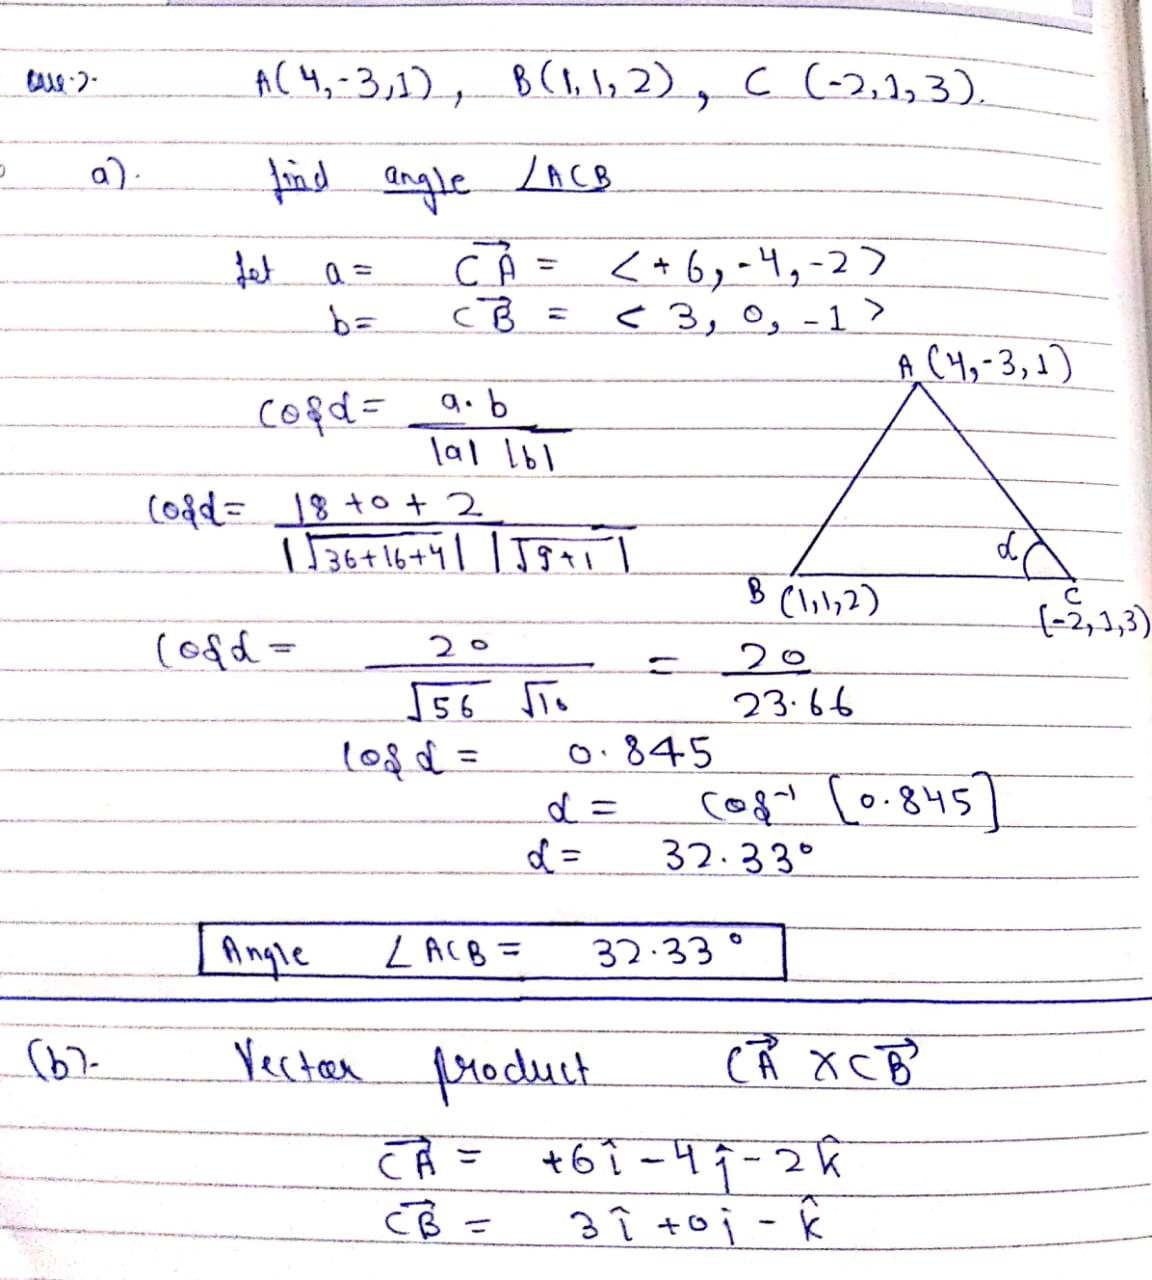 A(4,-3,1), B(1,1,2), C (-2,1,3).
a). find angle ∠ACB
Let a = CA⃗ = <+6,-4,-2>
b = CB⃗ = <3, 0, -1>
A (4,-3,1)
cosα = a.b / |a| |b|
cosα = 18+0+2 / |√36+16+4| |√9+1|
α
B (1,1,2)
C
(-2,1,3)
cosα = 20 / √56 √10 = 20 / 23.66
cosα = 0.845
α = cos⁻¹ [0.845]
α = 32.33°
Angle ∠ACB = 32.33°
(b)- Vector product CA⃗ × CB⃗
CA⃗ = +6î - 4ĵ - 2k̂
CB⃗ = 3î + 0j - k̂